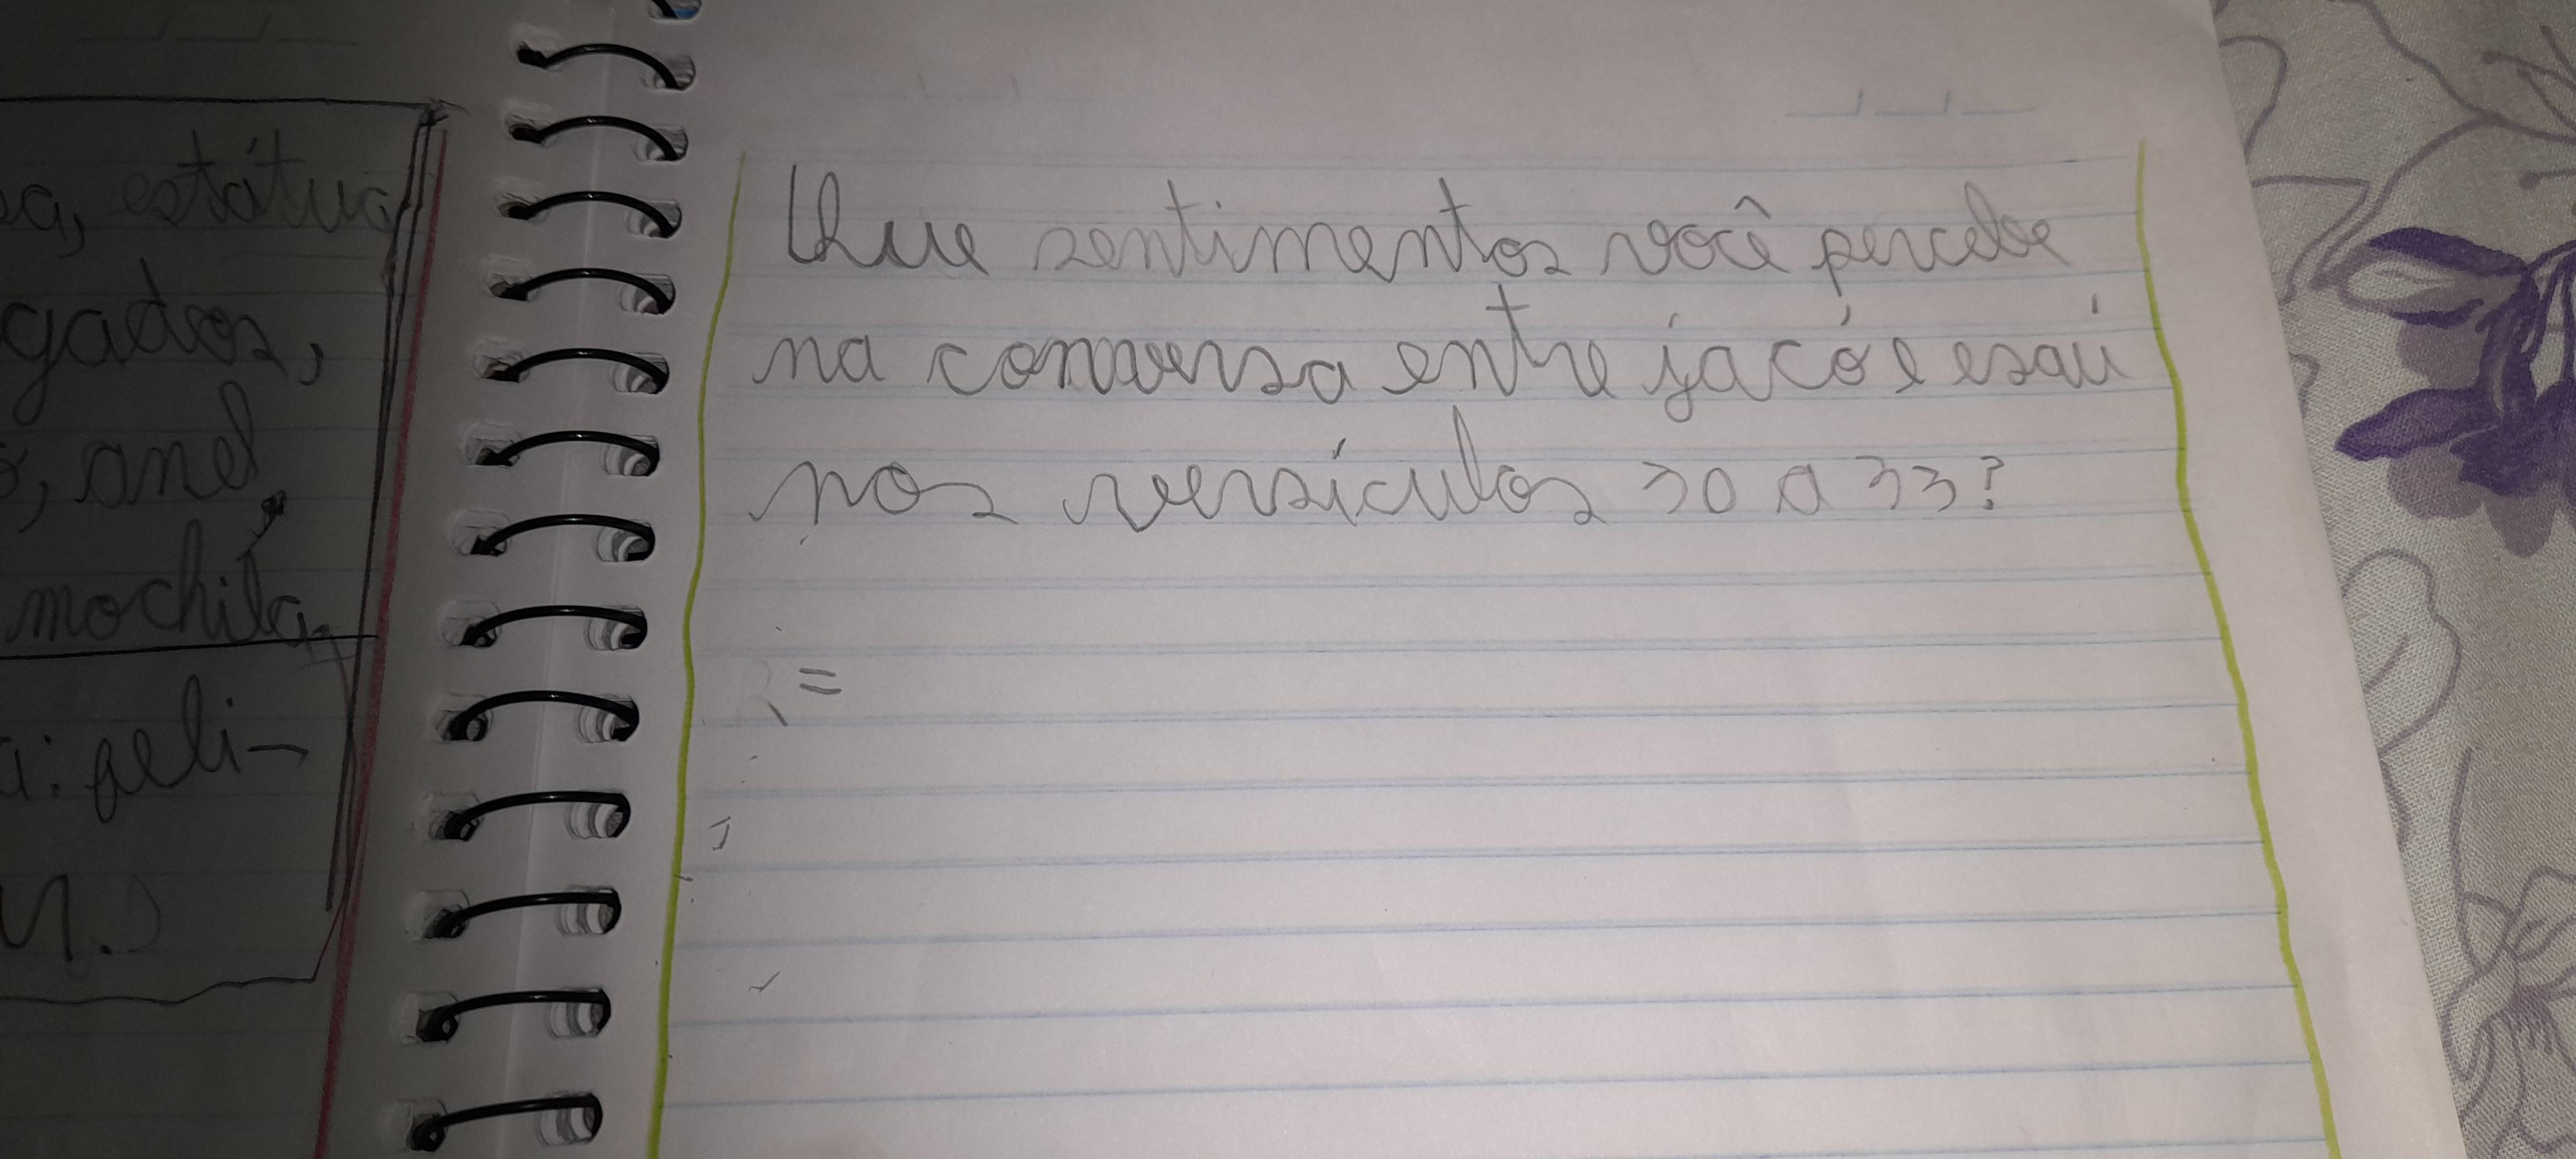 a, estátua
gados,
, anel
mochila,
a: peli-
Que sentimentos você percebe
na conversa entre jacó e esaú
nos versículos 30 a 33?
R=